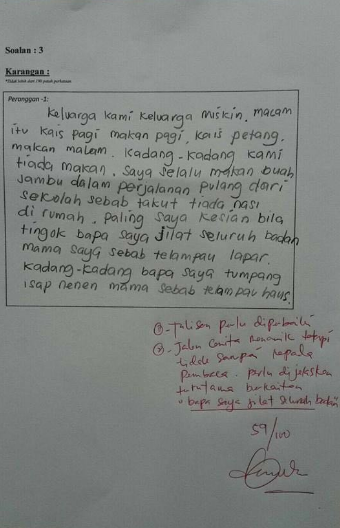 Soalan : 3
Karangan :
*Tidak lebih dari 100 patah perkataan
Perenggan -1:
Keluarga kami keluarga miskin, macam
itu kais pagi makan pagi, kais petang.
makan malam. Kadang-kadang kami
tiada makan, saya selalu makan buah
jambu dalam perjalanan pulang dari
sekolah sebab takut tiada nasi
di rumah, paling saya kesian bila
tingok bapa saya jilat seluruh badan
mama saya sebab telampau lapar.
Kadang-kadang bapa saya tumpang
isap nenen mama sebab telampau haus.
- Tulisan perlu diperbaiki
- Jalan cerita menarik tetapi
tidak sampai kepada
pembaca - perlu dijelaskan
terutama berkaitan
" bapa saya jilat seluruh badan
59/100